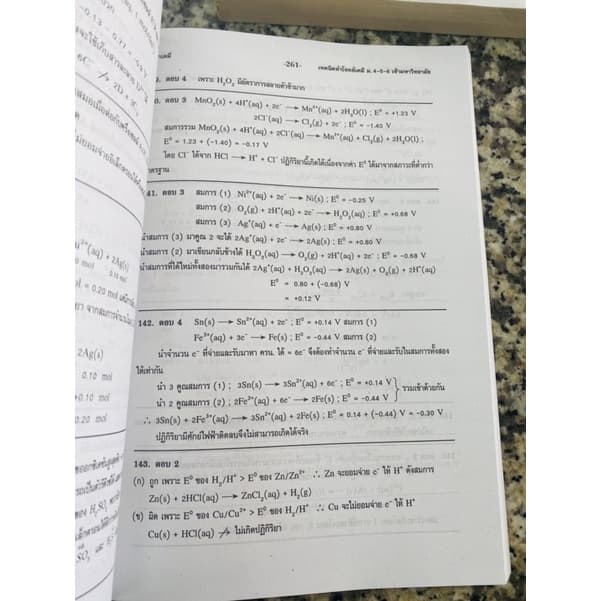 -261-
เทคนิคทำโจทย์เคมี ม.4-5-6 เข้ามหาวิทยาลัย
ตอบ 4 เพราะ H₂O₂ มีอัตราการสลายตัวช้ามาก
0. ตอบ 3 MnO₂(s) + 4H⁺(aq) + 2e⁻ → Mn²⁺(aq) + 2H₂O(l) ; E⁰ = +1.23 V
2Cl⁻(aq) → Cl₂(g) + 2e⁻ ; E⁰ = -1.40 V
สมการรวม MnO₂(s) + 4H⁺(aq) + 2Cl⁻(aq) → Mn²⁺(aq) + Cl₂(g) + 2H₂O(l) ;
E⁰ = 1.23 + (-1.40) = -0.17 V
โดย Cl⁻ ได้จาก HCl → H⁺ + Cl⁻ ปฏิกิริยานี้เกิดได้เนื่องจากค่า E⁰ ได้มาจากสภาวะที่ต่ำกว่า
มาตรฐาน
41. ตอบ 3 สมการ (1) Ni²⁺(aq) + 2e⁻ → Ni(s) ; E⁰ = -0.25 V
สมการ (2) O₂(g) + 2H⁺(aq) + 2e⁻ → H₂O₂(aq) ; E⁰ = +0.68 V
สมการ (3) Ag⁺(aq) + e⁻ → Ag(s) ; E⁰ = +0.80 V
นำสมการ (3) มาคูณ 2 จะได้ 2Ag⁺(aq) + 2e⁻ → 2Ag(s) ; E⁰ = +0.80 V
นำสมการ (2) มาเขียนกลับข้างได้ H₂O₂(aq) → O₂(g) + 2H⁺(aq) + 2e⁻ ; E⁰ = -0.68 V
นำสมการที่ได้ใหม่ทั้งสองมารวมกันได้ 2Ag⁺(aq) + H₂O₂(aq) → 2Ag(s) + O₂(g) + 2H⁺(aq)
E⁰ = 0.80 + (-0.68) V
= +0.12 V
142. ตอบ 4 Sn(s) → Sn²⁺(aq) + 2e⁻ ; E⁰ = +0.14 V สมการ (1)
Fe³⁺(aq) + 3e⁻ → Fe(s) ; E⁰ = -0.44 V สมการ (2)
นำจำนวน e⁻ ที่จ่ายและรับมาหา ครน. ได้ = 6e⁻ จึงต้องทำจำนวน e⁻ ที่จ่ายและรับในสมการทั้งสอง
ให้เท่ากัน
นำ 3 คูณสมการ (1) ; 3Sn(s) → 3Sn²⁺(aq) + 6e⁻ ; E⁰ = +0.14 V
นำ 2 คูณสมการ (2) ; 2Fe³⁺(aq) + 6e⁻ → 2Fe(s) ; E⁰ = -0.44 V } รวมเข้าด้วยกัน
∴ 3Sn(s) + 2Fe³⁺(aq) → 3Sn²⁺(aq) + 2Fe(s) ; E⁰ = 0.14 + (-0.44) V = -0.30 V
ปฏิกิริยามีศักย์ไฟฟ้าติดลบจึงไม่สามารถเกิดได้จริง
143. ตอบ 2
(ก) ถูก เพราะ E⁰ ของ H₂/H⁺ > E⁰ ของ Zn/Zn²⁺ ∴ Zn จะยอมจ่าย e⁻ ให้ H⁺ ดังสมการ
Zn(s) + 2HCl(aq) → ZnCl₂(aq) + H₂(g)
(ข) ผิด เพราะ E⁰ ของ Cu/Cu²⁺ > E⁰ ของ H₂/H⁺ ∴ Cu จะไม่ยอมจ่าย e⁻ ให้ H⁺
Cu(s) + HCl(aq) ↛ ไม่เกิดปฏิกิริยา
2Ag(s)
0.10 mol
+0.10 mol
0.20 mol